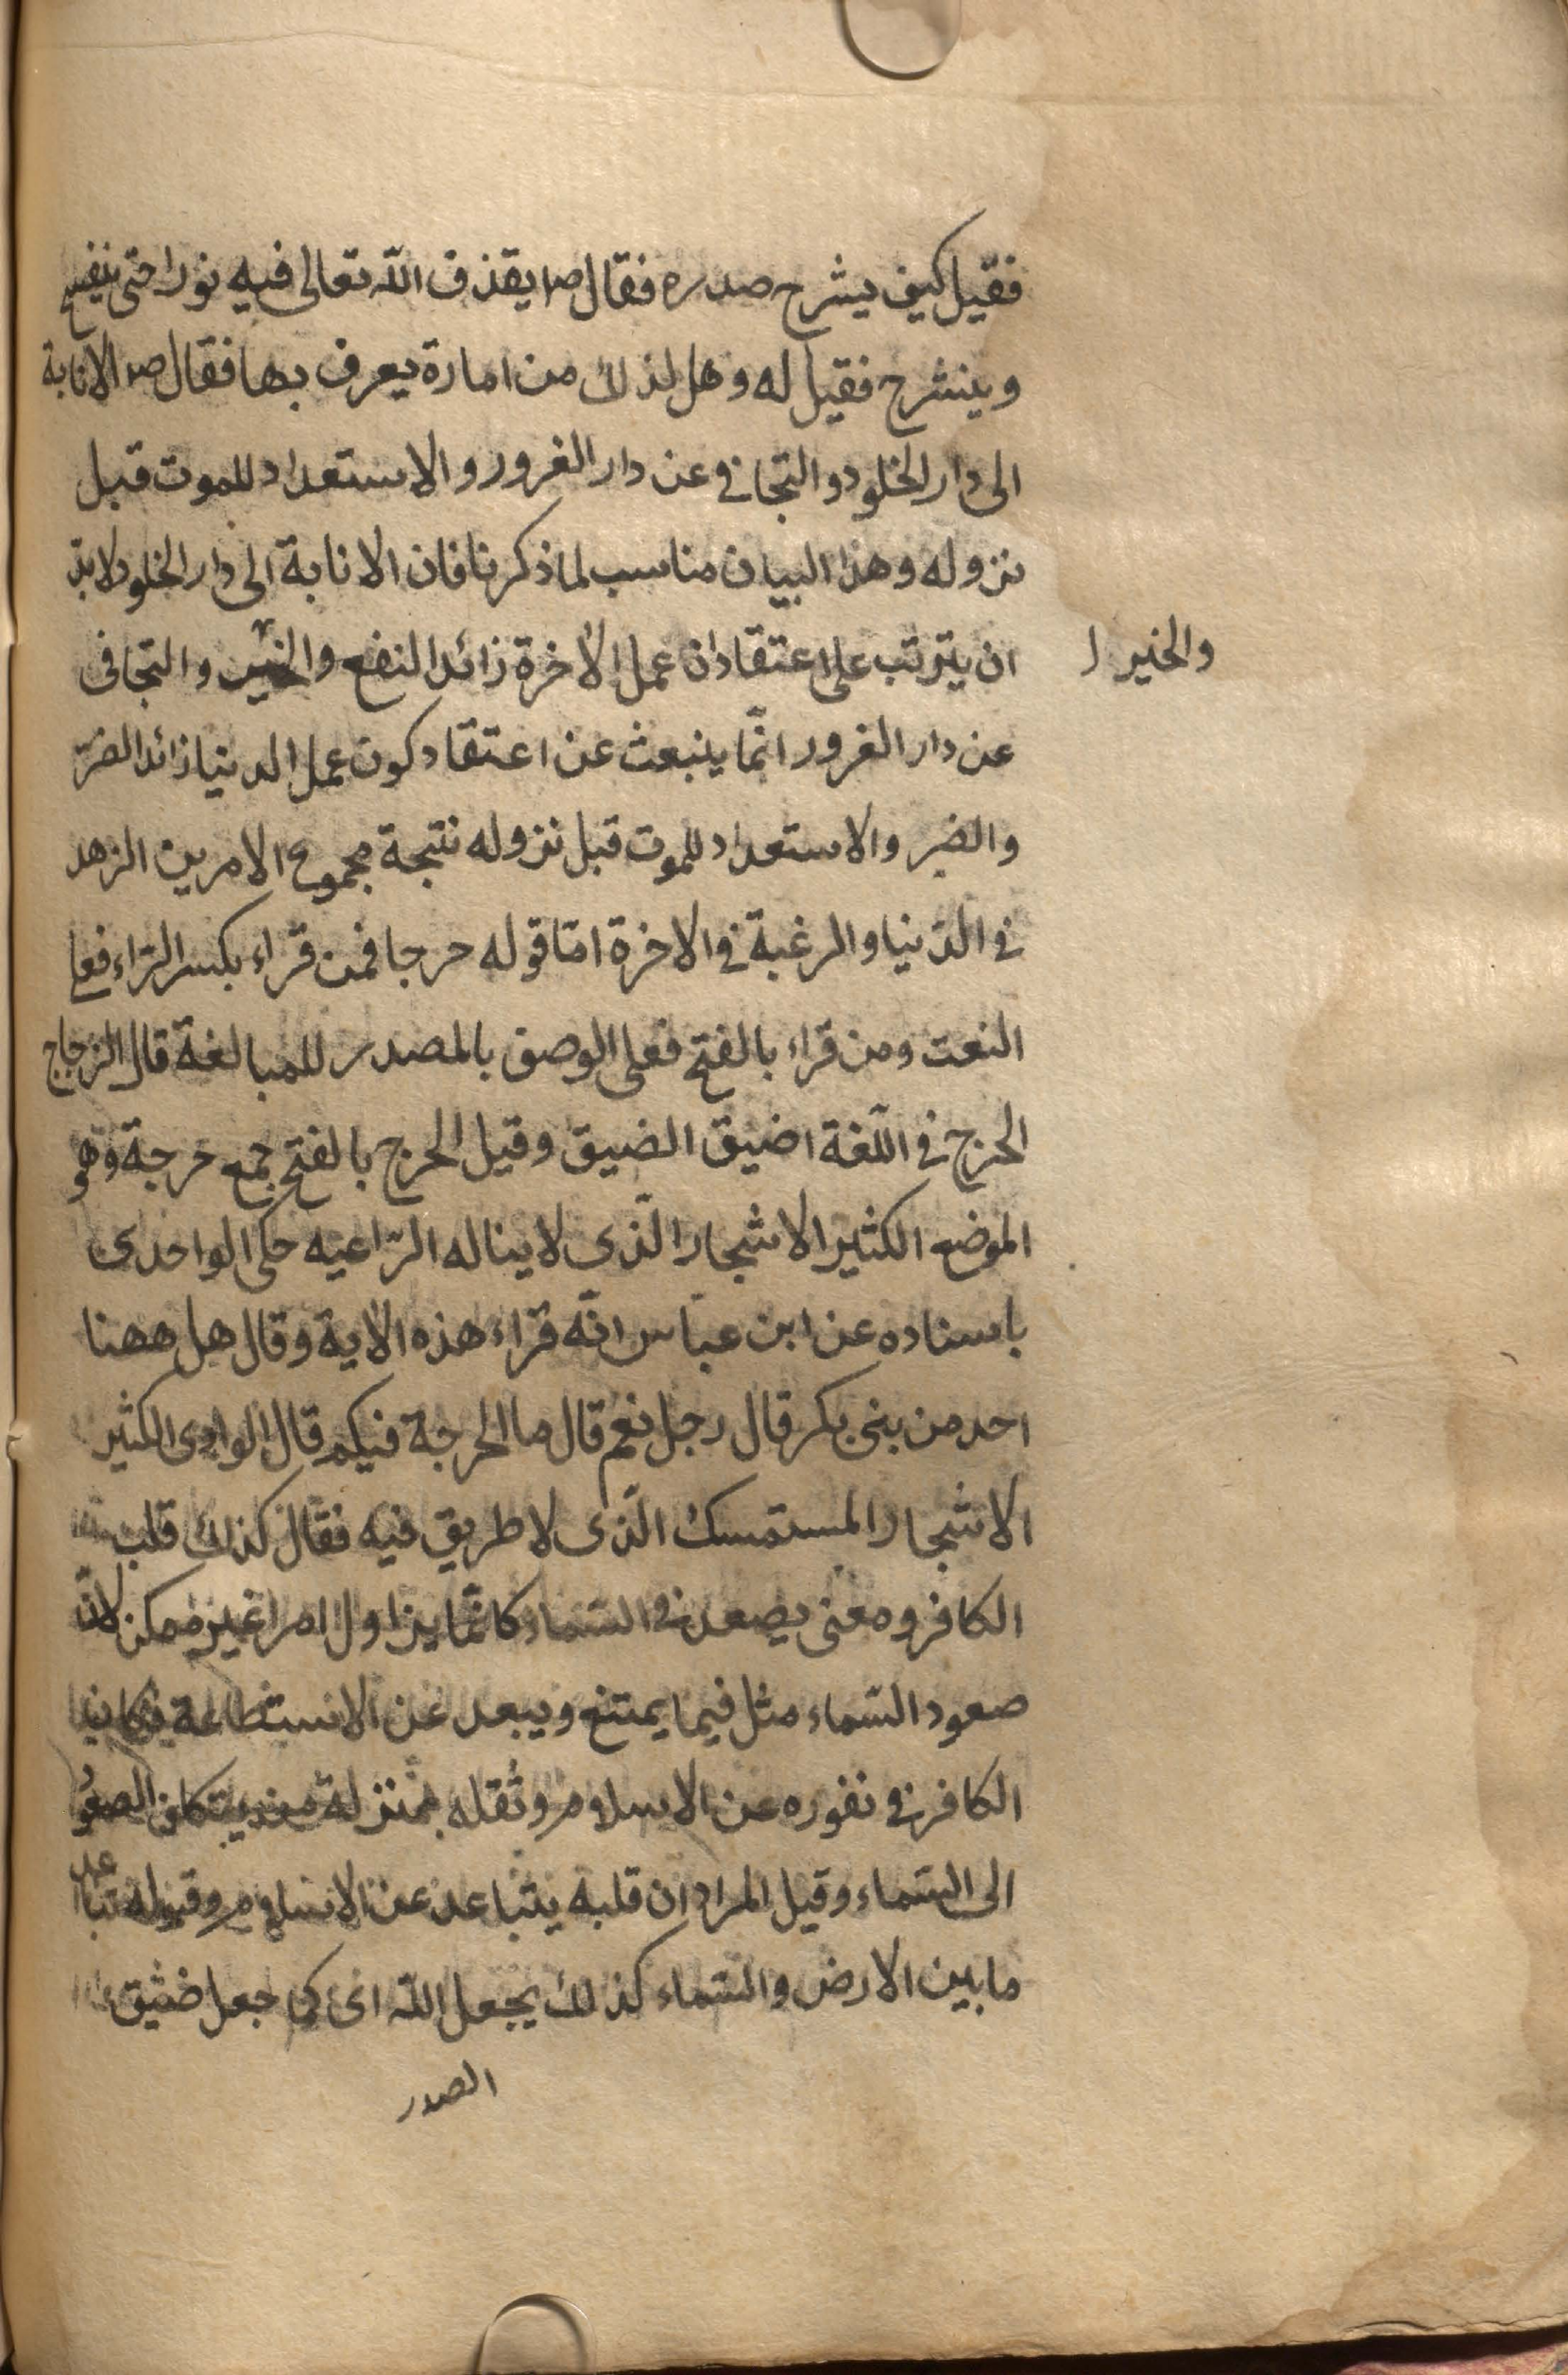 فقيل كيف يشرح صدره فقال صم يقذف الله تعالى فيه نورا حتى ينفسح
وينشرح فقيل له وهل لذلك من امارة يعرف بها فقال صم الانابة
الى دار الخلود والتجافي عن دار الغرور والاستعداد للموت قبل
نزوله وهذا البيان مناسب لما ذكرنا فان الانابة الى دار الخلود لابد
ان يترتب على اعتقاد ان عمل الاخرة زائد النفع والخير والتجافى
والخير
عن دار الغرور انمّا ينبعث عن اعتقاد كون عمل الدنيا زائد الضرّ
والضير والاستعداد للموت قبل نزوله نتيجة مجموع الامرين الزهد
في الدّنيا والرغبة في الاخرة امّا قوله حرجا فمن قراء بكسر الرّاء فعلى
النعت ومن قراء بالفتح فعلى الوصف بالمصدر للمبالغة قال الزجاج
الحرج في اللّغة اضيق الضيق وقيل الحرج بالفتح جمع حرجة وهو
الموضع الكثير الاشجار الّذى لا يناله الرّاعيه حكى الواحدى
باسناده عن ابن عبّاس انّه قراء هذه الاية وقال هل ههنا
احد من بنى بكر قال رجل نعم قال ما الحرجة فيكم قال الوادى الكثير
الاشجار المستمسك الّذى لا طريق فيه فقال كذلك قلب
الكافر ومعنى يصعد في السّماء كانمّا يزاول امرا غير ممكن لانّ
صعود السّماء مثل فيما يمتنع ويبعد عن الاستطاعة فكان
الكافر في نفوره عن الاسلام وثقله بمنزلة من يتكلف الصعود
الى السّماء وقيل المراد ان قلبه يتباعد عن الاسلام وقبوله تباعد
ما بين الارض والسّماء كذلك يجعل الله اى كما جعل ضيق
الصدر